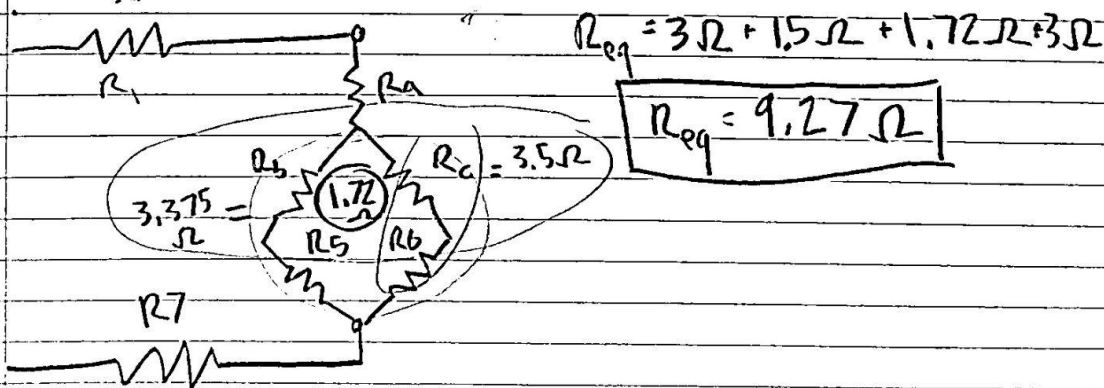 Req = 3Ω + 1.5Ω + 1.72Ω + 3Ω
R1
Ra
Req = 9.27 Ω
Rb
Rc = 3.5Ω
3.375 Ω =
1.72 Ω
R5
R6
R7